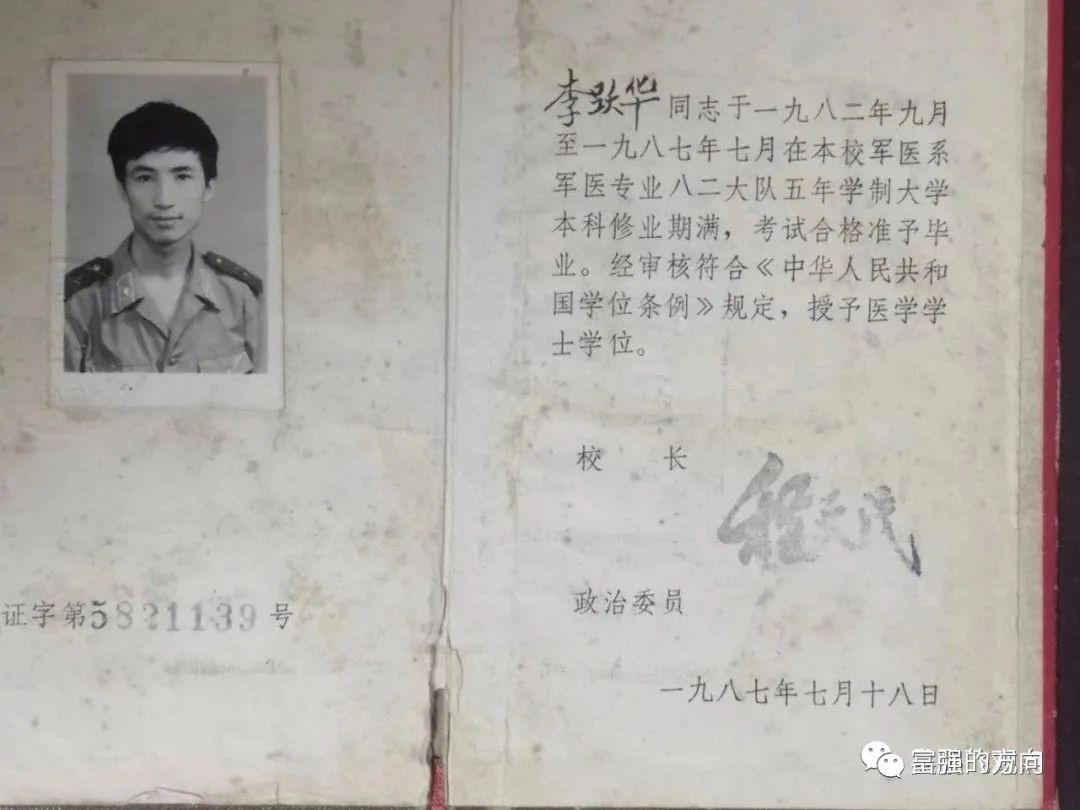 证字第5821139号
李跃华同志于一九八二年九月
至一九八七年七月在本校军医系
军医专业八二大队五年学制大学
本科修业期满，考试合格准予毕
业。经审核符合《中华人民共和
国学位条例》规定，授予医学学
士学位。
校 长
程天民
政治委员
一九八七年七月十八日
富强的方向